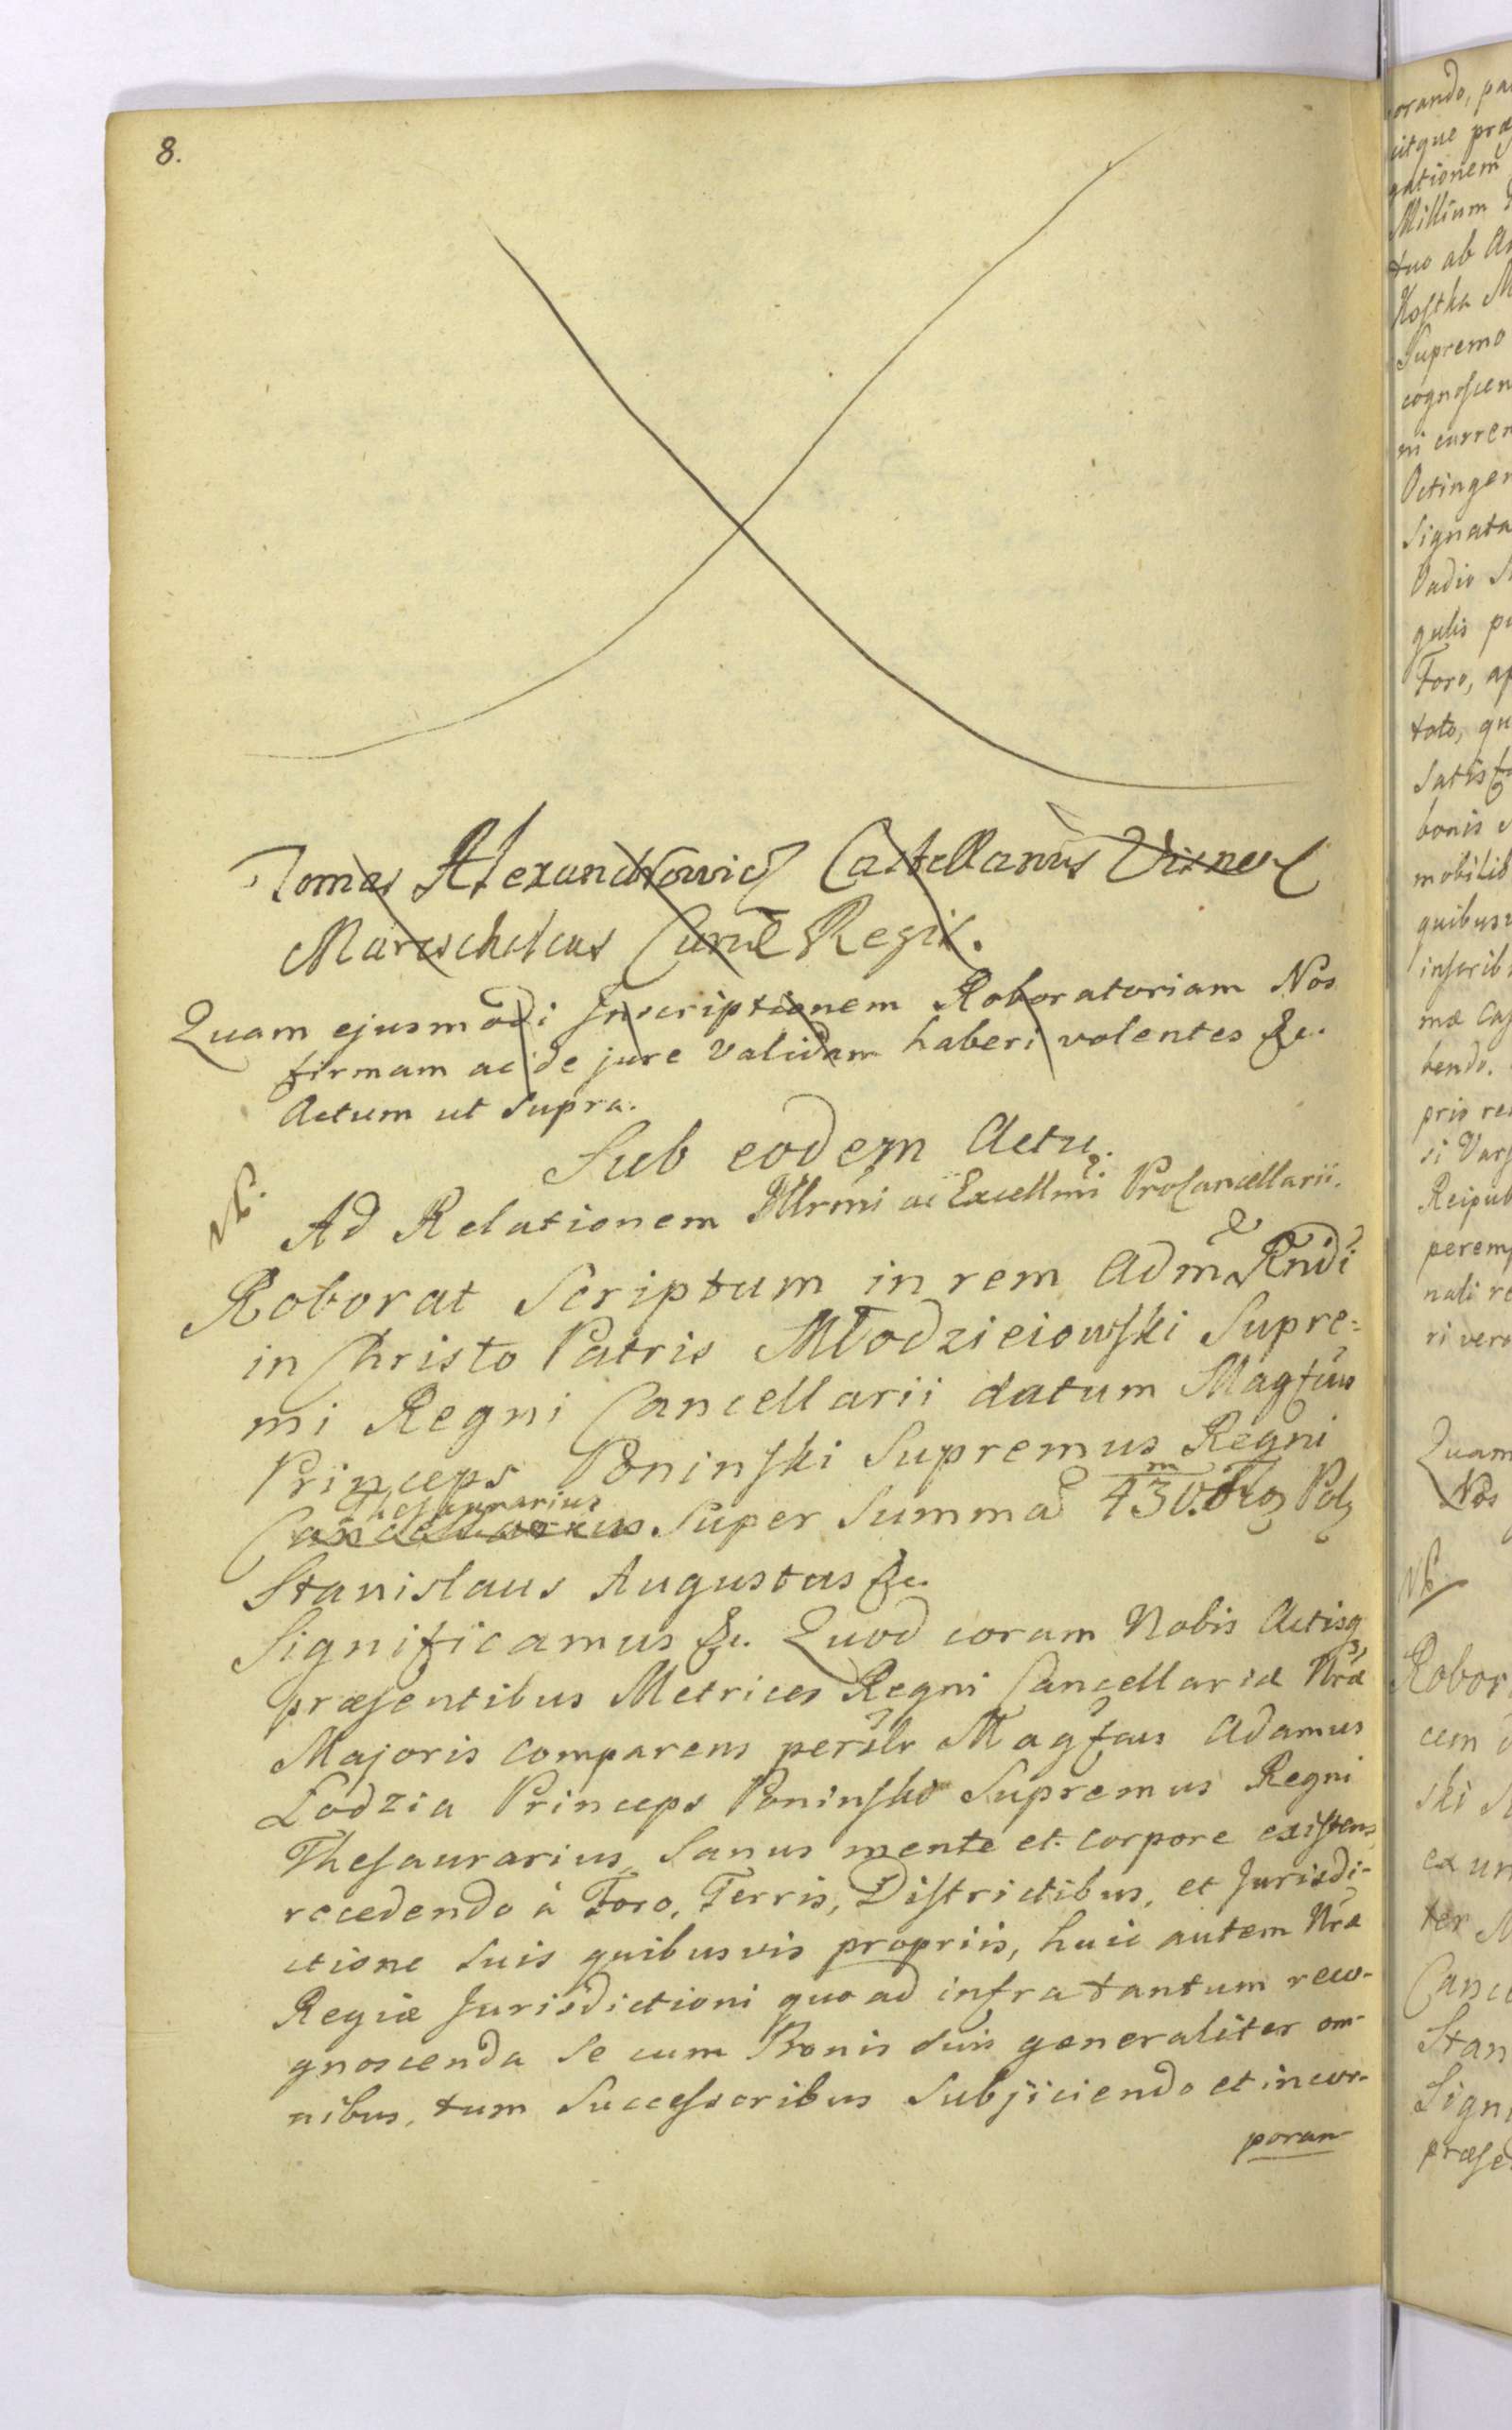 8.
Tomas Alexandrowicz Castellanus Visnen
Mareschalcus Curiæ Regiæ.
Quam ejusmodi Inscriptionem Roboratoriam Nos
firmam ac de jure validam haberi volentes &c.
Actum ut supra.
Sub eodem Actu.
NB.
Ad Relationem Illrmi ac Excellmi ProCancellarii.
Roborat Scriptum in rem Adm Rndi
in Christo Patris Młodzieiowski Supre=
mi Regni Cancellarii datum Magfus
Princeps Poninski Supremus Regni
Thesaurarius
Cancellarius Super Summa 430.m Flor Pol
Stanislaus Augustus &c.
Significamus &c. Quod coram Nobis Actisq3
præsentibus Metrices Regni Cancellariæ Nræ
Majoris comparens persolr Magfus Adamus
Lodzia Princeps Poninski Supremus Regni
Thesaurarius, Sanus mente et corpore existens
recedendo à Foro, Terris, Districtibus, et Jurisdi-
ctione suis quibusvis propriis, huic autem Nræ
Regiæ Jurisdictioni quo ad infra tantum reco-
gnoscenda Se cum Bonis suis generaliter om-
nibus, tum Successoribus Subjiciendo et incor-
poran
orando, pa
citque præ
gationem
Millium
tuo ab
Kostka M
Supremo
cognoscen
ni curren
Octingen
Signata
Vadio
gulis pu
Foro, ap
toto, qu
satisf
bonis
mobilib
quibusv
inscrib
mæ Cas
bendo.
prio re
si Vars
Reipub
peremp
nali re
ri vero
Quam
Nos
NB
Robor
cem
ski
ex un
ter M
Cance
Stan
Signi
præse